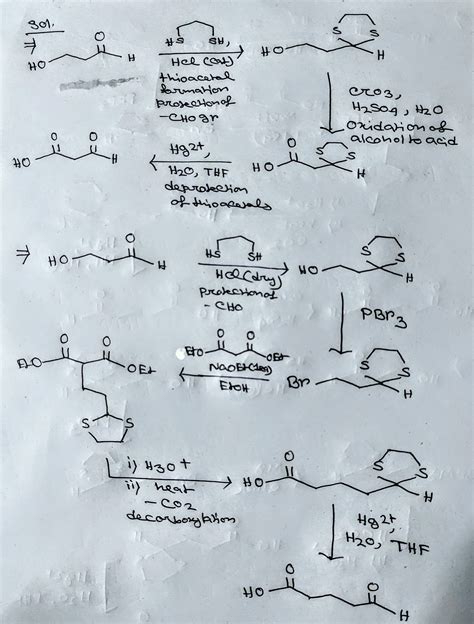 Sol.
⇒
O
HO
H
SH SH,
HCl (cat)
thioacetal
formation
protection of
-CHO gr
HO
S
S
H
CrO3,
H2SO4, H2O
Oxidation of
alcohol to acid
O
HO
O
H
Hg2+,
H2O, THF
deprotection
of thioacetals
O
HO
S
S
H
⇒
HO
O
H
HS
SH
HCl (dry)
protection of
- CHO
HO
S
S
H
PBr3
Br
S
S
H
O
O
EtO
OEt
EtOH
O
O
EtO
OEt
S
S
i) H3O+
ii) heat
- CO2
decarboxylation
O
HO
S
S
H
Hg2+,
H2O, THF
O
HO
O
H